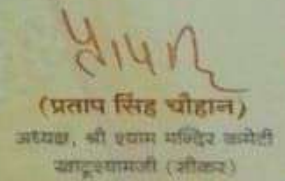 प्रताप
(प्रताप सिंह चौहान)
अध्यक्ष, श्री श्याम मन्दिर कमेटी
खाटूश्यामजी (सीकर)